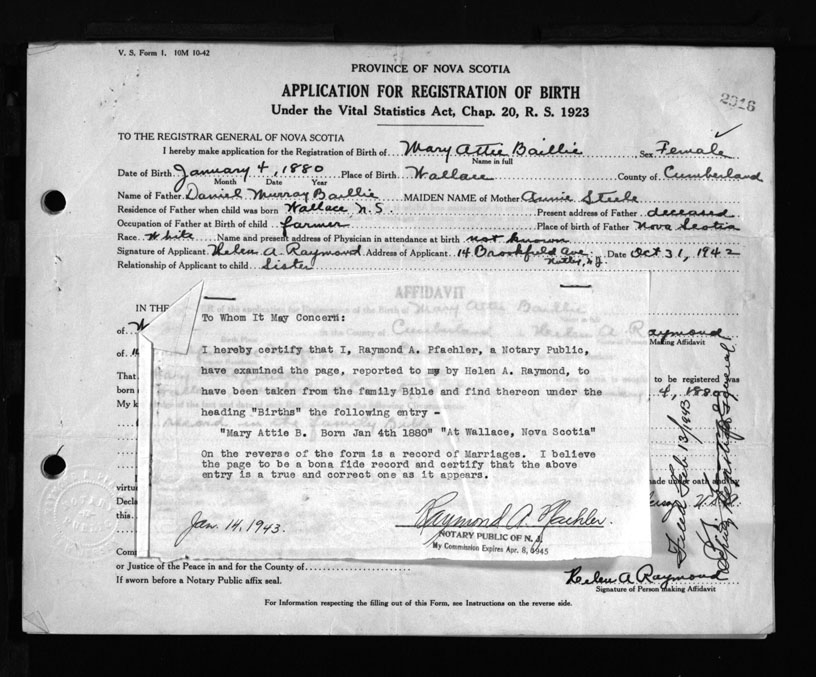 V. S. Form 1. 10M 10-42
PROVINCE OF NOVA SCOTIA
APPLICATION FOR REGISTRATION OF BIRTH
Under the Vital Statistics Act, Chap. 20, R. S. 1923
2916
TO THE REGISTRAR GENERAL OF NOVA SCOTIA
I hereby make application for the Registration of Birth of Mary Attie Baillie Sex Female
Name in full
Date of Birth January 4, 1880 Place of Birth Wallace County of Cumberland
Month Date Year
Name of Father Daniel Murray Baillie MAIDEN NAME of Mother Annie Steele
Residence of Father when child was born Wallace N.S. Present address of Father deceased
Occupation of Father at Birth of child farmer Place of birth of Father Nova Scotia
Race White Name and present address of Physician in attendance at birth not known
Signature of Applicant Helen A. Raymond Address of Applicant 14 Brookfield Ave. Nutley, N.J. Date Oct 31, 1942
Relationship of Applicant to child Sister
AFFIDAVIT
IN THE
Mary Attie Baillie
of
Cumberland Helen A Raymond
Making Affidavit
of
That
to be registered was
4, 1880
My k
virtu
made under oath and
Decla
this
Com
or Justice of the Peace in and for the County of
If sworn before a Notary Public affix seal.
To Whom It May Concern:
I hereby certify that I, Raymond A. Pfaehler, a Notary Public,
have examined the page, reported to me by Helen A. Raymond, to
have been taken from the family Bible and find thereon under the
heading "Births" the following entry -
"Mary Attie B. Born Jan 4th 1880" "At Wallace, Nova Scotia"
On the reverse of the form is a record of Marriages. I believe
the page to be a bona fide record and certify that the above
entry is a true and correct one as it appears.
Jan. 14, 1943. Raymond A. Pfaehler
NOTARY PUBLIC OF N. J.
My Commission Expires Apr. 8, 1945
Filed Feb 13/1943
Deputy Registrar General
Helen A Raymond
Signature of Person making Affidavit
For Information respecting the filling out of this Form, see Instructions on the reverse side.